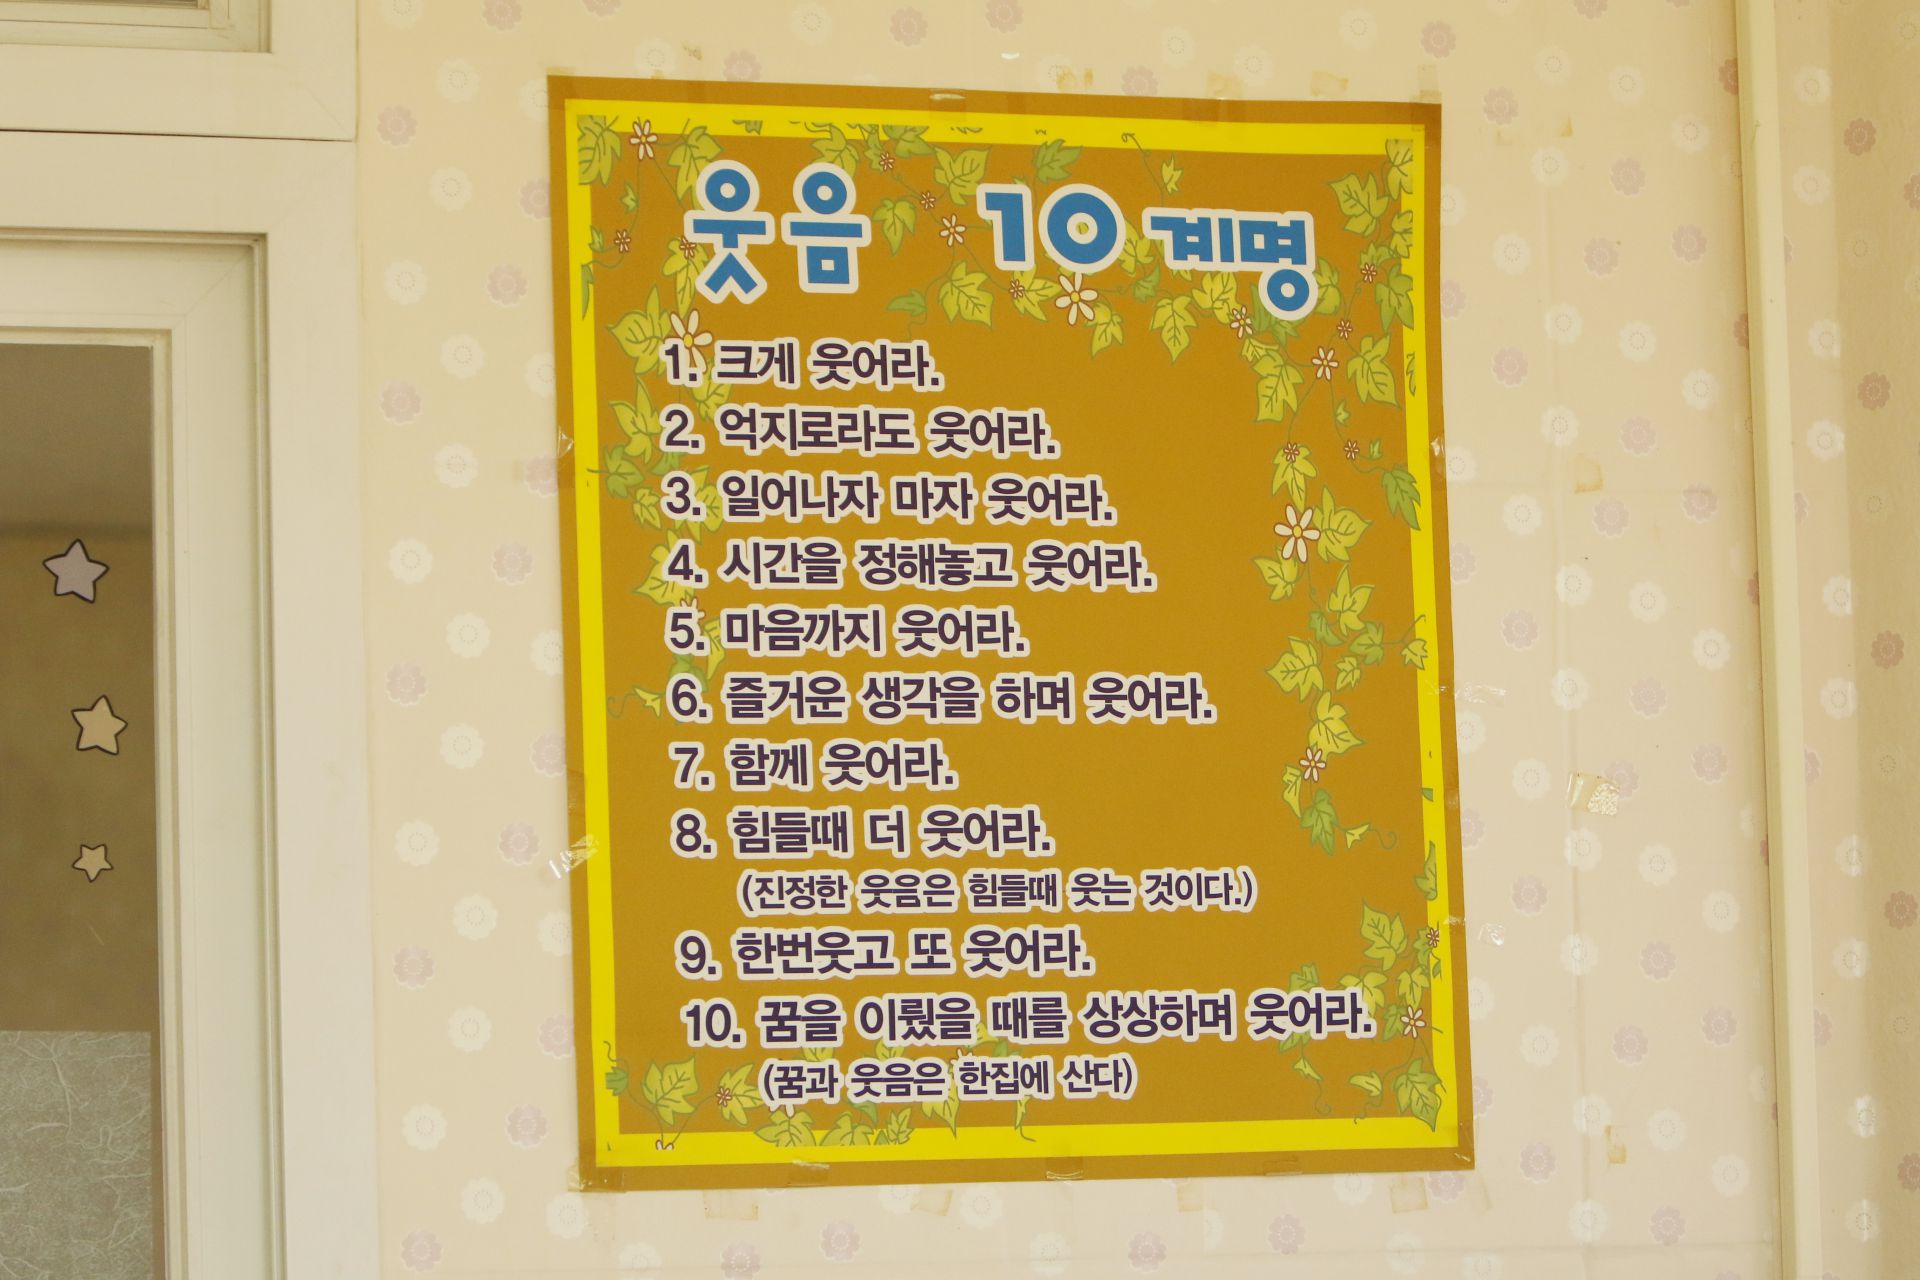 웃음 10 계명
1. 크게 웃어라.
2. 억지로라도 웃어라.
3. 일어나자 마자 웃어라.
4. 시간을 정해놓고 웃어라.
5. 마음까지 웃어라.
6. 즐거운 생각을 하며 웃어라.
7. 함께 웃어라.
8. 힘들때 더 웃어라.
(진정한 웃음은 힘들때 웃는 것이다.)
9. 한번웃고 또 웃어라.
10. 꿈을 이뤘을 때를 상상하며 웃어라.
(꿈과 웃음은 한집에 산다)